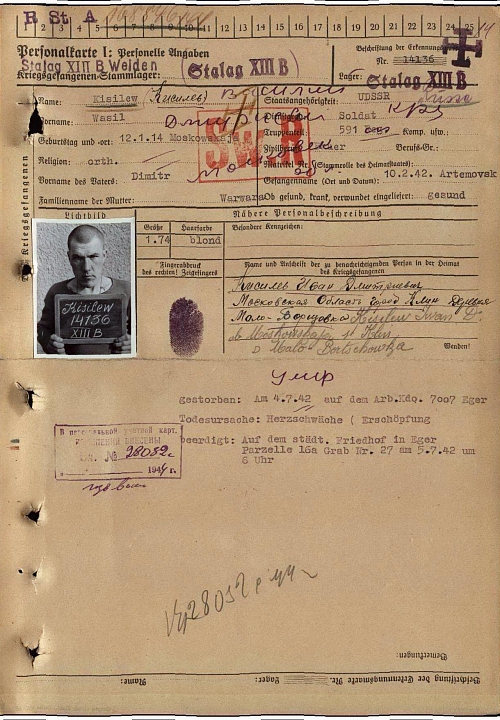 R St A
1 2 3 4 5 6 7 8 9 10 11 12 13 14 15 16 17 18 19 20 21 22 23 24 25
Personalkarte I: Personelle Angaben
Beschriftung der Erkennungsmarke
Stalag XIII B Weiden
(Stalag XIII B)
Nr. 14136
Kriegsgefangenen-Stammlager:
Lager: Stalag XIII B
Name: Kisilew (Кисилев) Василий
Staatsangehörigkeit: UDSSR
Russe
Vorname: Wasil Дмитриевич
Dienstgrad: Soldat
Geburtstag und -ort: 12.1.14 Moskowskaja
Truppenteil: 591 Komp. usw.:
Religion: orth.
Berufs-Gr.:
Vorname des Vaters: Dimitr
Matrikel Nr. (Stammrolle des Heimatstaates):
Gefangennahme (Ort und Datum): 10.2.42 Artemovsk
Familienname der Mutter: Warwara
Ob gesund, krank, verwundet eingeliefert: gesund
Lichtbild
Nähere Personalbeschreibung
Größe
Haarfarbe
Besondere Kennzeichen:
1.74
blond
Fingerabdruck
des rechten! Zeigefingers
Name und Anschrift der zu benachrichtigenden Person in der Heimat
des Kriegsgefangenen
Kisilew
14136
XIII B
Кисилев Иван Дмитриевич
Московская Область город Клин Деревня
Мало-Борщовка Kisilew Iwan D.
ob Moskowskaja st Klin
D Malo Bortschowka
Wenden!
умер
gestorben: Am 4.7.42 auf dem Arb.Kdo. 7007 Eger
Todesursache: Herzschwäche ( Erschöpfung
beerdigt: Auf dem städt. Friedhof in Eger
Parzelle 16a Grab Nr. 27 am 5.7.42 um
6 Uhr
№ 28032с
194 г.
28032
Bemerkungen:
Beschriftung der Erkennungsmarke Nr.
Lager:
Name: